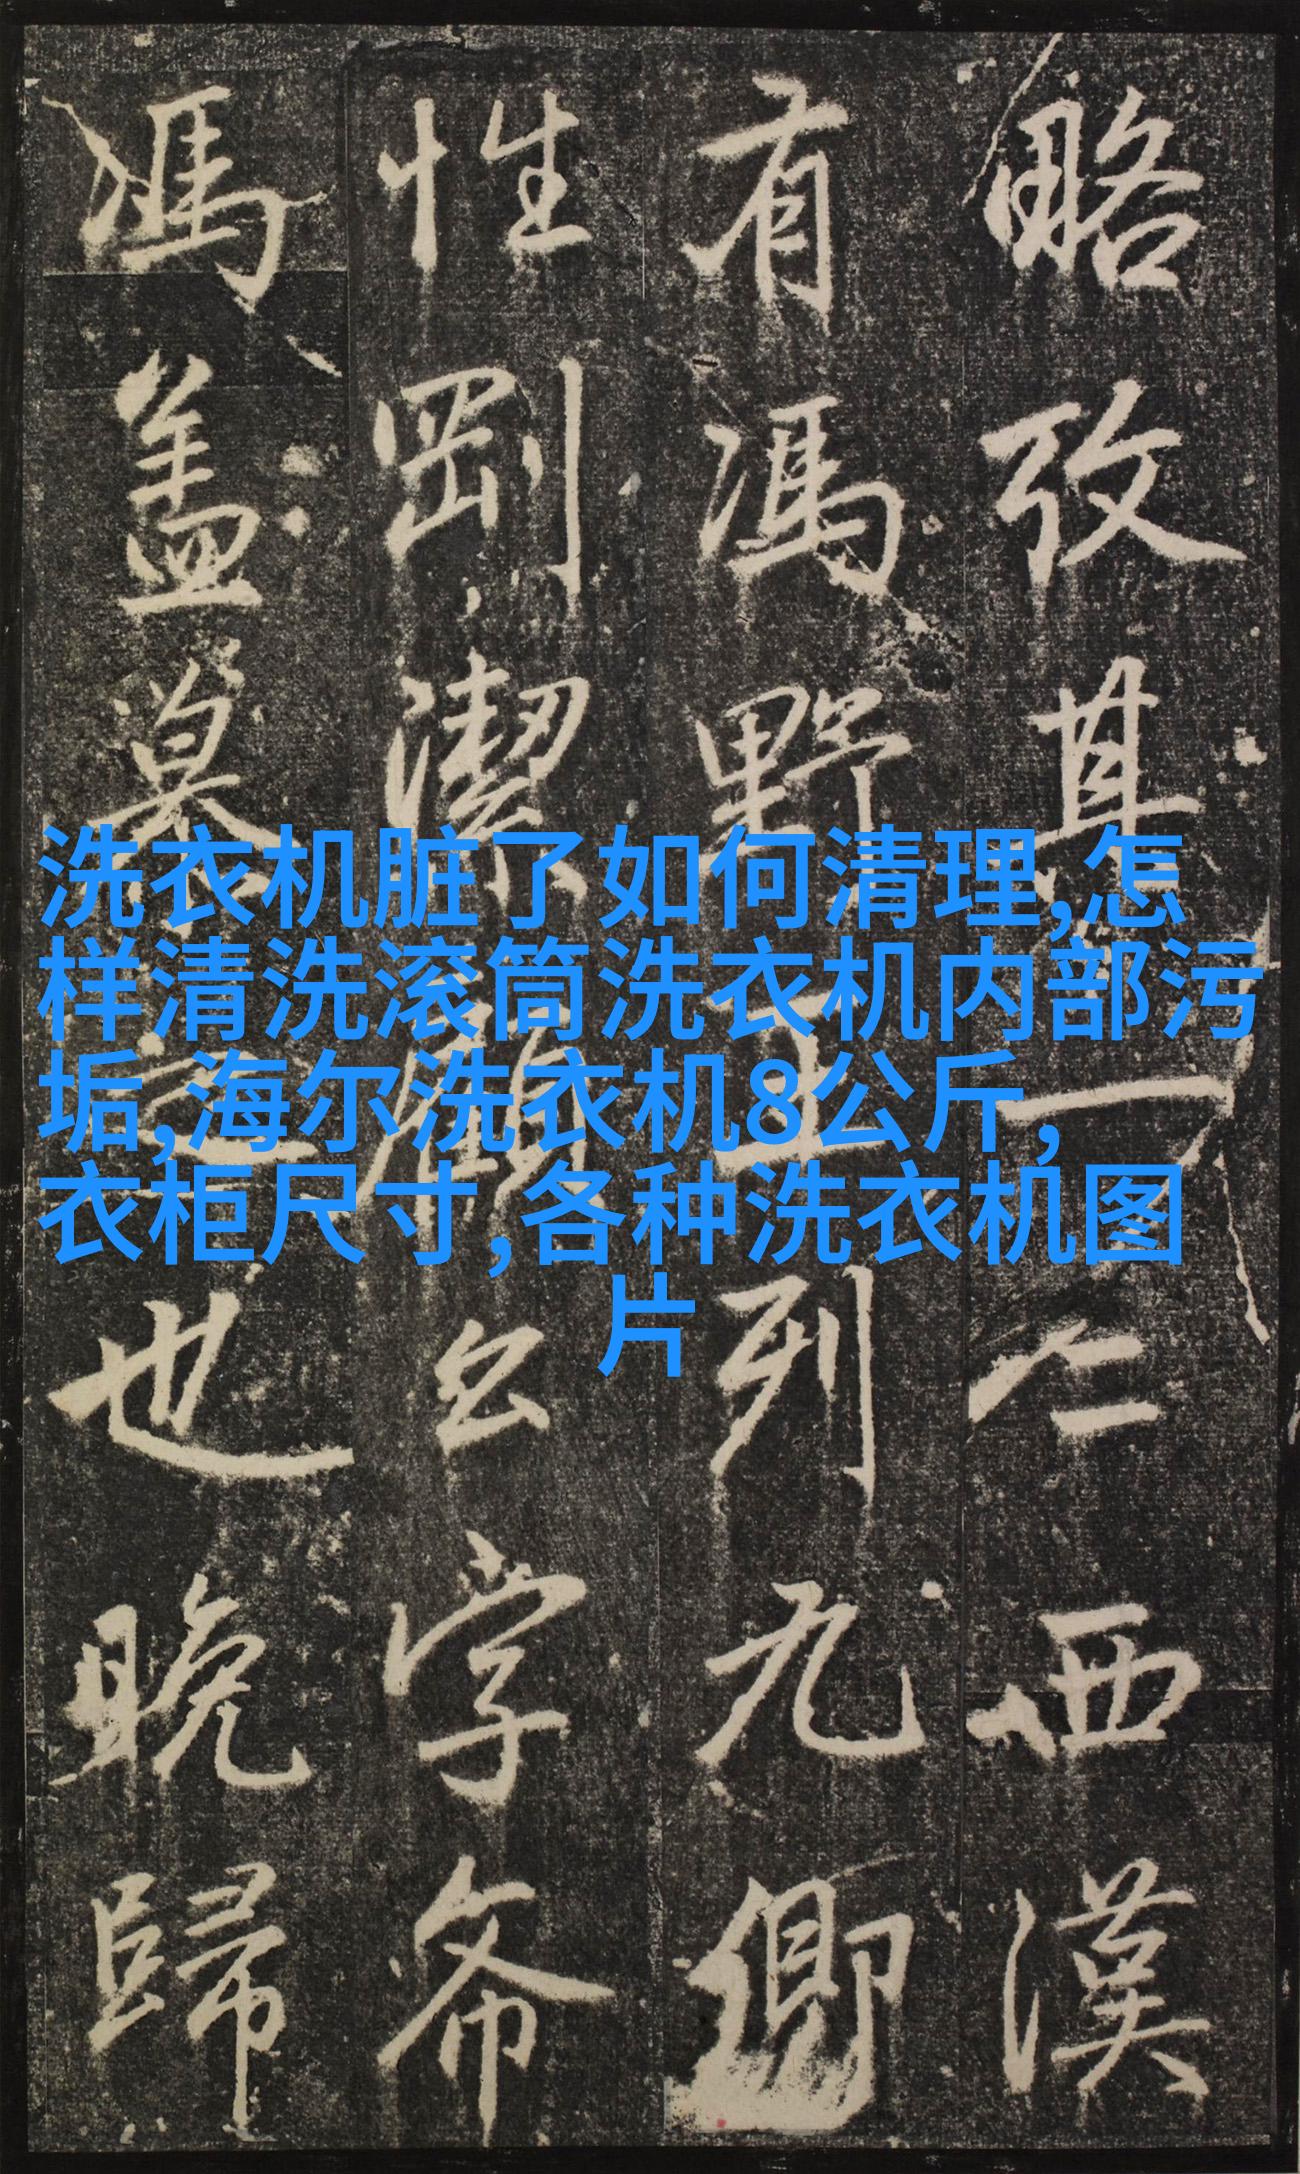 洗衣机脏了如何清理,怎
样清洗滚筒洗衣机内部污
垢,海尔洗衣机8公斤,
衣柜尺寸,各种洗衣机图
片
略攷其一二西漢
有馮野王列九卿
性剛潔顧公字希
馮蓋慕之也晚歸